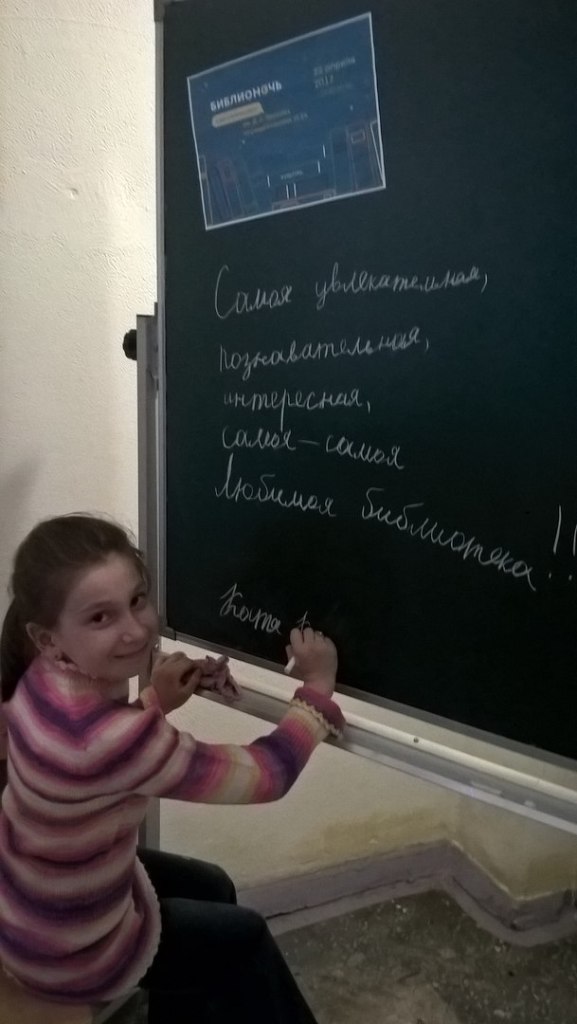 БИБЛИОНОЧЬ
22 апреля
2017
Самая увлекательная,
познавательная,
интересная,
самая-самая
Любимая библиотека!!
Катя